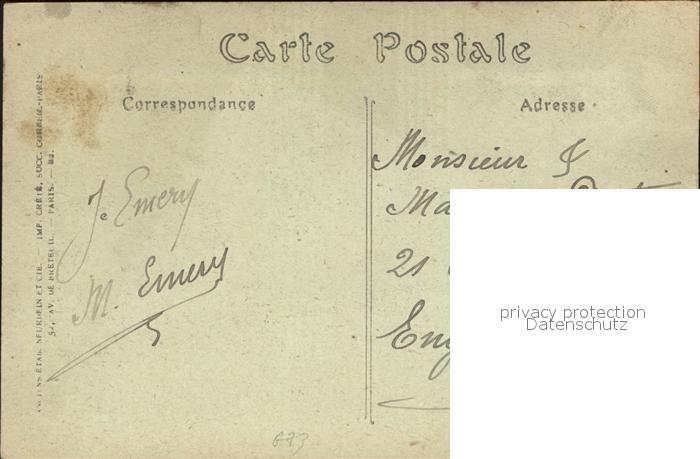 Carte Postale
Correspondance
Adresse
ANCIENS ÉTAB. NEURDEIN ET CIE. — IMP. CRÉTÉ, SUCC. CORBEIL-PARIS
52, AV. DE BRETEUIL. — PARIS. —
Je Emery
M. Emery
Monsieur
21
673
privacy protection
Datenschutz